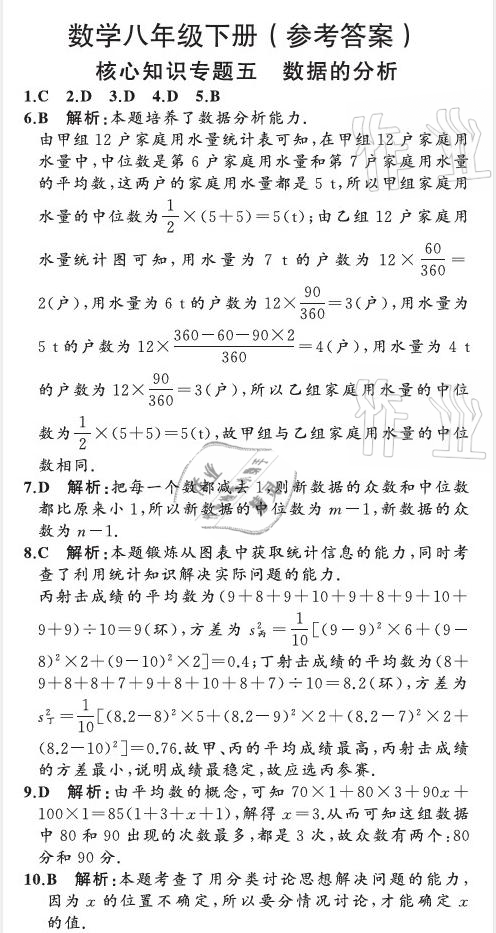 数学八年级下册(参考答案)
核心知识专题五 数据的分析
1.C 2.D 3.D 4.D 5.B
6.B 解析:本题培养了数据分析能力.
由甲组 12 户家庭用水量统计表可知,在甲组 12 户家庭用
水量中,中位数是第 6 户家庭用水量和第 7 户家庭用水量
的平均数,这两户的家庭用水量都是 5 t,所以甲组家庭用
水量的中位数为 1/2 ×(5+5)=5(t);由乙组 12 户家庭用
水量统计图可知,用水量为 7 t 的户数为 12× 60/360 =
2(户),用水量为 6 t 的户数为 12× 90/360 =3(户),用水量为
5 t 的户数为 12× (360-60-90×2)/360 =4(户),用水量为 4 t
的户数为 12× 90/360 =3(户),所以乙组家庭用水量的中位
数为 1/2 ×(5+5)=5(t),故甲组与乙组家庭用水量的中位
数相同.
7.D 解析:把每一个数都减去 1,则新数据的众数和中位数
都比原来小 1,所以新数据的中位数为 m-1,新数据的众
数为 n-1.
8.C 解析:本题锻炼从图表中获取统计信息的能力,同时考
查了利用统计知识解决实际问题的能力.
丙射击成绩的平均数为(9+8+9+10+9+8+9+10+
9+9)÷10=9(环),方差为 s²丙 = 1/10 [(9-9)²×6+(9-
8)²×2+(9-10)²×2]=0.4;丁射击成绩的平均数为(8+
9+8+8+7+9+8+10+8+7)÷10=8.2(环),方差为
s²丁 = 1/10 [(8.2-8)²×5+(8.2-9)²×2+(8.2-7)²×2+
(8.2-10)²]=0.76.故甲、丙的平均成绩最高,丙射击成绩
的方差最小,说明成绩最稳定,故应选丙参赛.
9.D 解析:由平均数的概念,可知 70×1+80×3+90x+
100×1=85(1+3+x+1),解得 x=3.从而可知这组数据
中 80 和 90 出现的次数最多,都是 3 次,故众数有两个:80
分和 90 分.
10.B 解析:本题考查了用分类讨论思想解决问题的能力,
因为 x 的位置不确定,所以要分情况讨论,才能确定 x
的值.